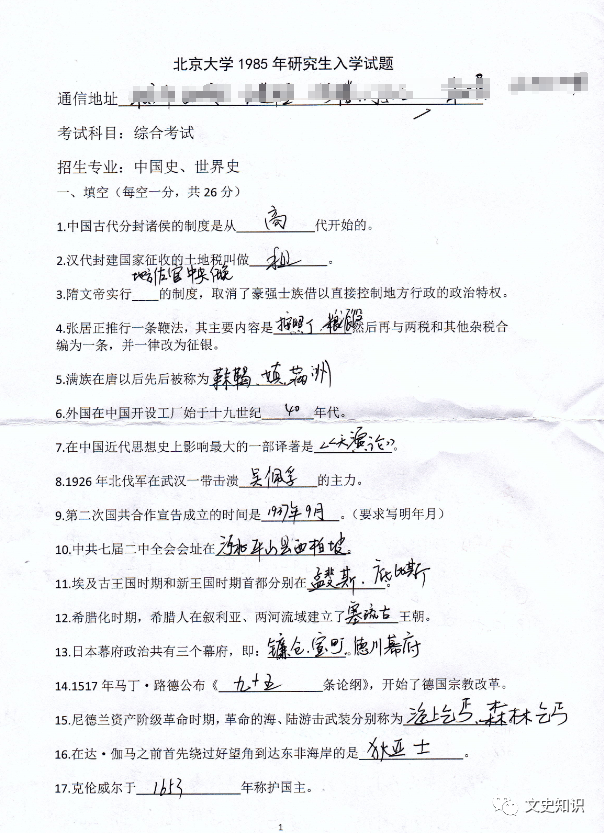 北京大学1985年研究生入学试题
通信地址
考试科目：综合考试
招生专业：中国史、世界史
一、填空（每空一分，共26分）
1.中国古代分封诸侯的制度是从商代开始的。
2.汉代封建国家征收的土地税叫做租。
地方佐官中央任免
3.隋文帝实行____的制度，取消了豪强士族借以直接控制地方行政的政治特权。
4.张居正推行一条鞭法，其主要内容是按照丁、粮派役然后再与两税和其他杂税合
编为一条，并一律改为征银。
5.满族在唐以后先后被称为靺鞨、女真、满洲
6.外国在中国开设工厂始于十九世纪40年代。
7.在中国近代思想史上影响最大的一部译著是《天演论》。
8.1926年北伐军在武汉一带击溃吴佩孚的主力。
9.第二次国共合作宣告成立的时间是1937年9月。（要求写明年月）
10.中共七届二中全会会址在河北平山县西柏坡。
11.埃及古王国时期和新王国时期首都分别在孟斐斯、底比斯。
12.希腊化时期，希腊人在叙利亚、两河流域建立了塞琉古王朝。
13.日本幕府政治共有三个幕府，即：镰仓、室町、德川幕府
14.1517年马丁·路德公布《九十五条论纲》，开始了德国宗教改革。
15.尼德兰资产阶级革命时期，革命的海、陆游击武装分别称为海上乞丐、森林乞丐
16.在达·伽马之前首先绕过好望角到达东非海岸的是狄亚士。
17.克伦威尔于1653年称护国主。
1
文史知识